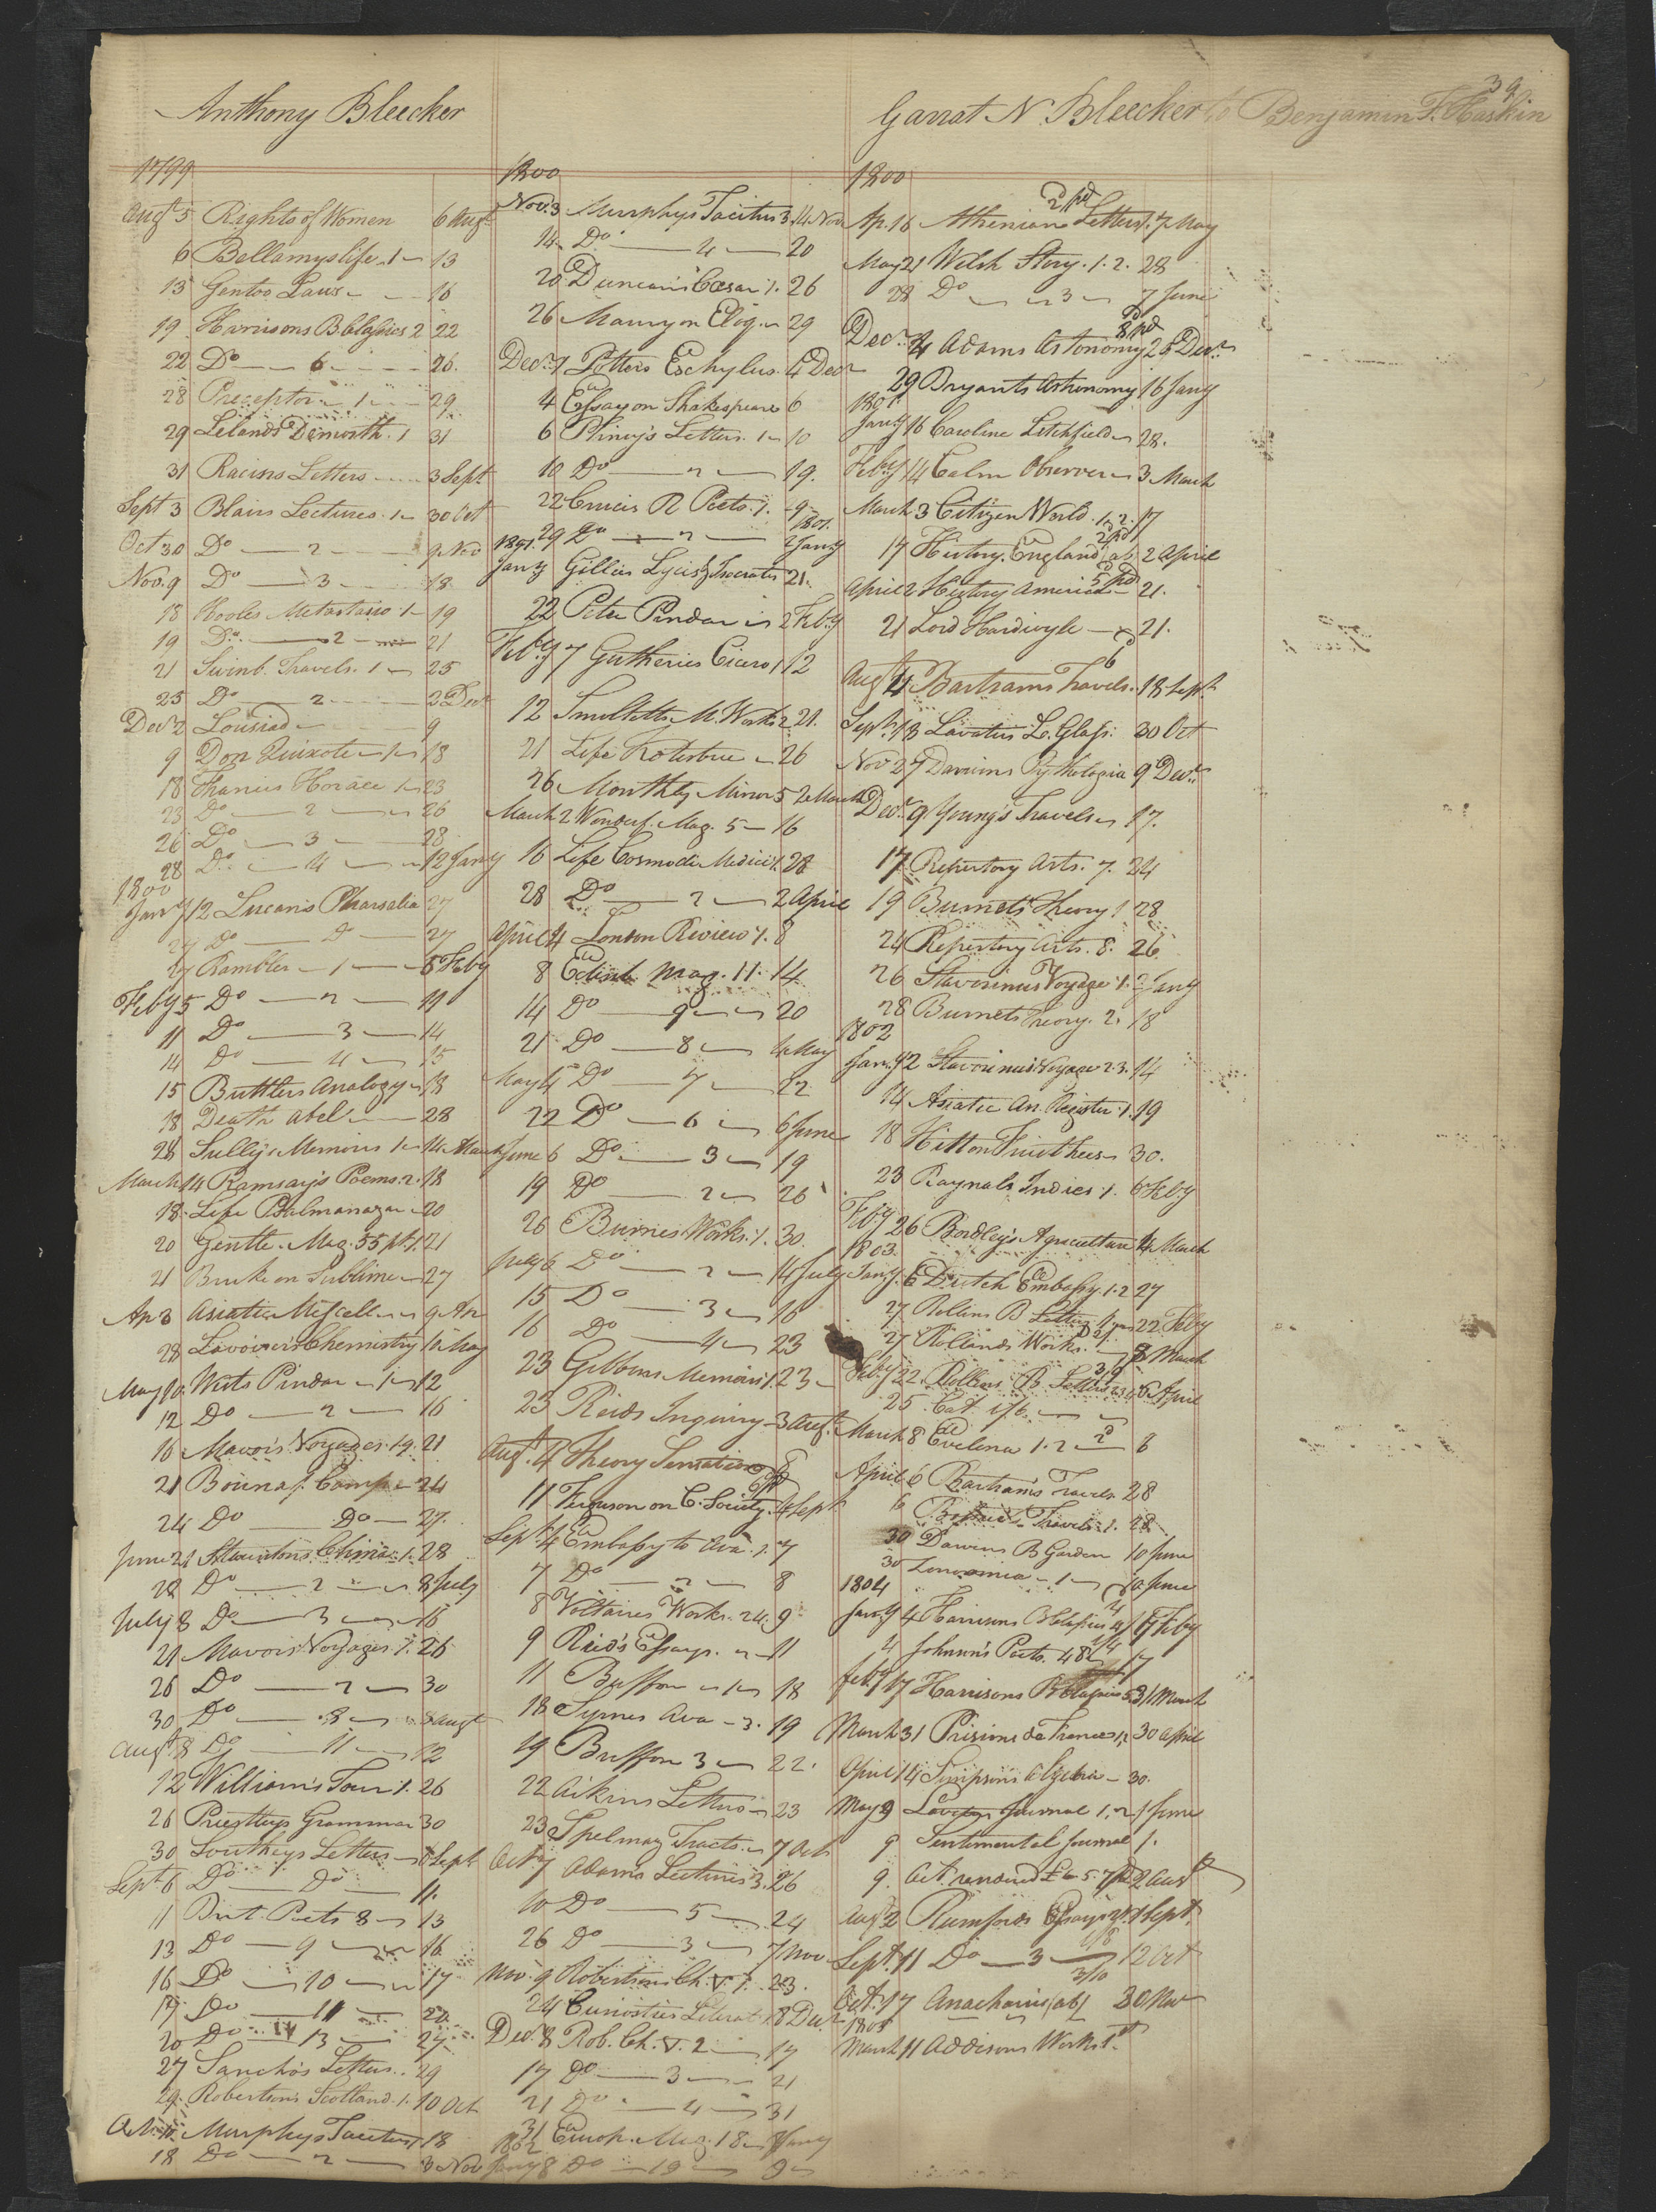 39
Anthony Bleecker
1799
Augt 5 Rights of Women 6 Augt
6 Bellamys life 1 13
13 Gentoo Laws 16
19 Harrisons B Classics 2 22
22 Do 6 26.
28 Preceptor 1 29
29 Lelands Demosth. 1 31
31 Racins Letters 3 Sept
Sept 3 Blairs Lectures 1 30 Oct
Oct 30 Do 2 9 Nov
Nov. 9 Do 3 18
18 Hooles Metastasio 1 19
19 Do 2 21
21 Swinb. Travels. 1 25
25 Do 2 2 Decr
Decr 2 Lousiad 9
9 Don Quixote 1 18
18 Francis Horace 1 23
23 Do 2 26
26 Do 3 28
28 Do 4 12 Jany
1800
Jany 12 Lucans Pharsalia 27
27 Do Do 27
27 Rambler 1 5 Feby
Feby 5 Do 2 11
11 Do 3 14
14 Do 4 15
15 Buttlers Analogy 18
18 Death Abel 28
28 Sullys Memoirs 1 14 March
March 14 Ramsays Poems. 2. 18
18 Life Psalmanazar 20
20 Gentle. Mag. 55 pt. 1. 21
21 Burke on Sublime 27
Ap 3 Asiatic Miscell. 9 Ap
28 Lavoisier's Chemistry 10 May
May 10 Wests Pindar 1 12
12 Do 2 16
16 Mavois Voyages. 19. 21
21 Bonap. Camp. 24
24 Do Do 27.
June 21 Stauntons China. 1. 28
28 Do 2 8 July
July 8 Do 3 18
21 Mavois Voyages. 1. 26
26 Do 2 30
30 Do 8 8 Augt
Augt 8 Do 11 12
12 Williams Tour 1. 26
26 Priestleys Grammar 30
30 Southeys Letters 6 Sept
Sept 6 Do Do 11.
11 Brit. Poets 8 13
13 Do 9 16
16 Do 10 17
17 Do 11 20
20 Do 13 27
27 Sancho's Letters 29
29 Robertsons Scotland. 1. 10 Oct
Murphys Tacitus 1 18
18 Do 2 3 Nov
1800
Nov. 3 Murphys Tacitus 3. 14 Nov
14 Do 4 20
20 Duncan's Cæsar 1. 26
26 Maury on Eloq. 29
Decr. 1 Potters Eschylus. 4 Decr
4 Essay on Shakespeare 6
6 Pliny's Letters. 1 10
10 Do 2 19.
22 R Poets. 1. 9
1801.
29 Do 2 2 Jany
1801.
Jany Gillies Lycis & Isocrates 21.
22 Peter Pindar 2 Feby
Feby 7 Gutheries Cicero 1 12
12 Smolletts M. Works 2 21.
21 Life Kotzbue 26
26 Monthly Mirror 5 2 March
March 2 Wonderf. Mag. 5 16
16 Life Cosmo de Medici 1. 28
28 Do 2 2 April
April 4 London Review 1. 8
8 Edinb Mag. 11. 14
14 Do 9 20
21 Do 8 4 May
May 4 Do 7 22
22 Do 6 6 June
June 6 Do 3 19
19 Do 2 26
26 Burns Works. 1. 30.
July 6 Do 2 14 July
15 Do 3 16
16 Do 4 23
23 Gibbons Memoirs 1. 23
23 Reids Inquiry 3 Augt.
Augt. 4 Theory Sensation 8
6 pd
11 Ferguson on C. Society. 4 Sept
Sept. 4 Embassy to Ava. 1. 7
7 Do 2 8
8 Voltaires Works. 24. 9
9 Reid's Essays. 2 11
11 Buffon 1 18
18 Symes Ava 3. 19
19 Buffon 3 22.
22 Aikins Letters 23
23 Spelman Tracts 7 Oct
Oct 7 Adams Lectures 3. 26
10 Do 5 24
26 Do 3 7 Nov
Nov. 9 Robertsons Ch. V. 1. 23.
24 Curiosities Literat. 1. 8 Decr.
Decr. 8 Rob. Ch. V. 2 17
17 Do 3 21
21 Do 4 31
31 Europ. Mag. 18 8 Jany
1802
Jany 8 Do 19 9
Garrat N. Bleecker to Benjamin F. Haskin
1800
2 pd
Ap. 16 Athenian Letters 1. 7 May
May 21 Welsh Story. 1. 2. 28
28 Do 3 7 June
8 pd
Decr. 4 Adams Astronomy 25 Decr.
29 Bryants Astronomy 16 Jany
1801.
Jany 16 Caroline Litchfield 28.
Feby 14 Calm Observer 3 March
March 3 Citizen World. 1. 2. 17
2 pd
17 History England (ab) 2 April
5 pd
April 2 History America 21.
21 Lord Hardwyle 21.
Augt 4 Bartrams Travels. 18 Sept.
Sept. 18 Lavatus L. Glass. 30 Oct
Nov 27 Darwins Pythologia 9 Decr.
Decr. 9 Young's Travels 17.
17 Repertory Arts. 7. 24
19 Burnets Theory 1 28
24 Repertory Arts. 8. 26
26 Stavorinus Voyage 1. 2 Jany
28 Burnets Theory. 2. 18
1802
Jany 2 Stavorinus Voyage 2. 3. 14
14 Asiatic An. Register. 1. 19
18 30.
23 Raynals Indies. 1. 6 Feby
Feby 26 Bordleys Agriculture 4 March
1803.
Jany. 6 Dutch Embassy. 1. 2 27
27 Rollins B Letters 1 22 Feby
27 Rollands Works. 8 March
Feby 22. Rollins B. Letters 6 April
25 Cat. 1/6
March 8 Evelena 1. 2 8
April 6 Bartrams Travels 28
6 Travels 1. 28
30 Darwins B Garden 10 June
30 Zoonomia 1 10 June
1804
Jany 4 Harrisons B Classics 17 Feby
4 Johnson's Poets. 48 17
Feby 17 Harrisons B Classics 5. 31 March
March 31 Prisions de Frances 1. 2 30 April
April 14 Simpsons Algebra 30.
May 9 Journal 1. 2. 1 June
9 Sentimental Journal 1.
9. Act. renewed 2 Augt
Augt 2 Rumfords Essays 1 Sept.
Sept. 11 Do 3 12 Oct
3/10
Oct. 17 Anacharsis (ab) 20 Nov
1805
March 11 Addisons Works 1.